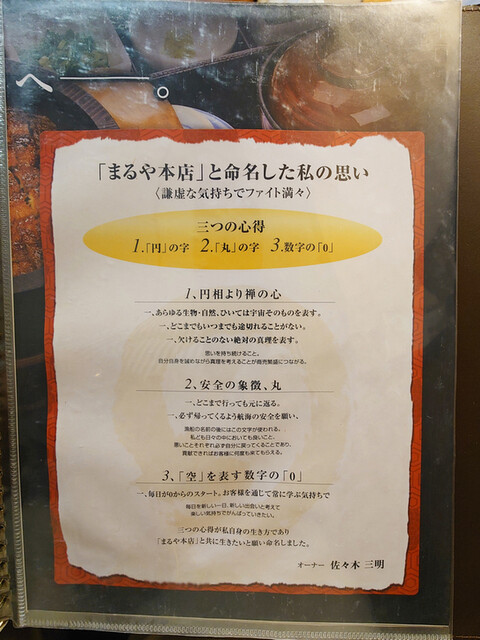 へ ー。
「まるや本店」と命名した私の思い
〈謙虚な気持ちでファイト満々〉
三つの心得
1.「円」の字 2.「丸」の字 3.数字の「0」
1、円相より禅の心
一、あらゆる生物・自然、ひいては宇宙そのものを表す。
一、どこまでもいつまでも途切れることがない。
一、欠けることのない絶対の真理を表す。
思いを持ち続けること。
自分自身を誡めながら真理を考えることが商売繁盛につながる。
2、安全の象徴、丸
一、どこまで行っても元に返る。
一、必ず帰ってくるよう航海の安全を願い、
漁船の名前の後にはこの文字が使われる。
私ども日々の中においても良いこと、
悪いことそれぞれ必ず自分に戻ってくることであり、
貢献できればお客様に何度も来てもらえる。
3、「空」を表す数字の「0」
一、毎日が0からのスタート。お客様を通じて常に学ぶ気持ちで
毎日を新しい一日、新しい出会いと考えて
楽しい気持ちでがんばっていきたい。
三つの心得が私自身の生き方であり
「まるや本店」と共に生きたいと願い命名しました。
オーナー 佐々木 三明